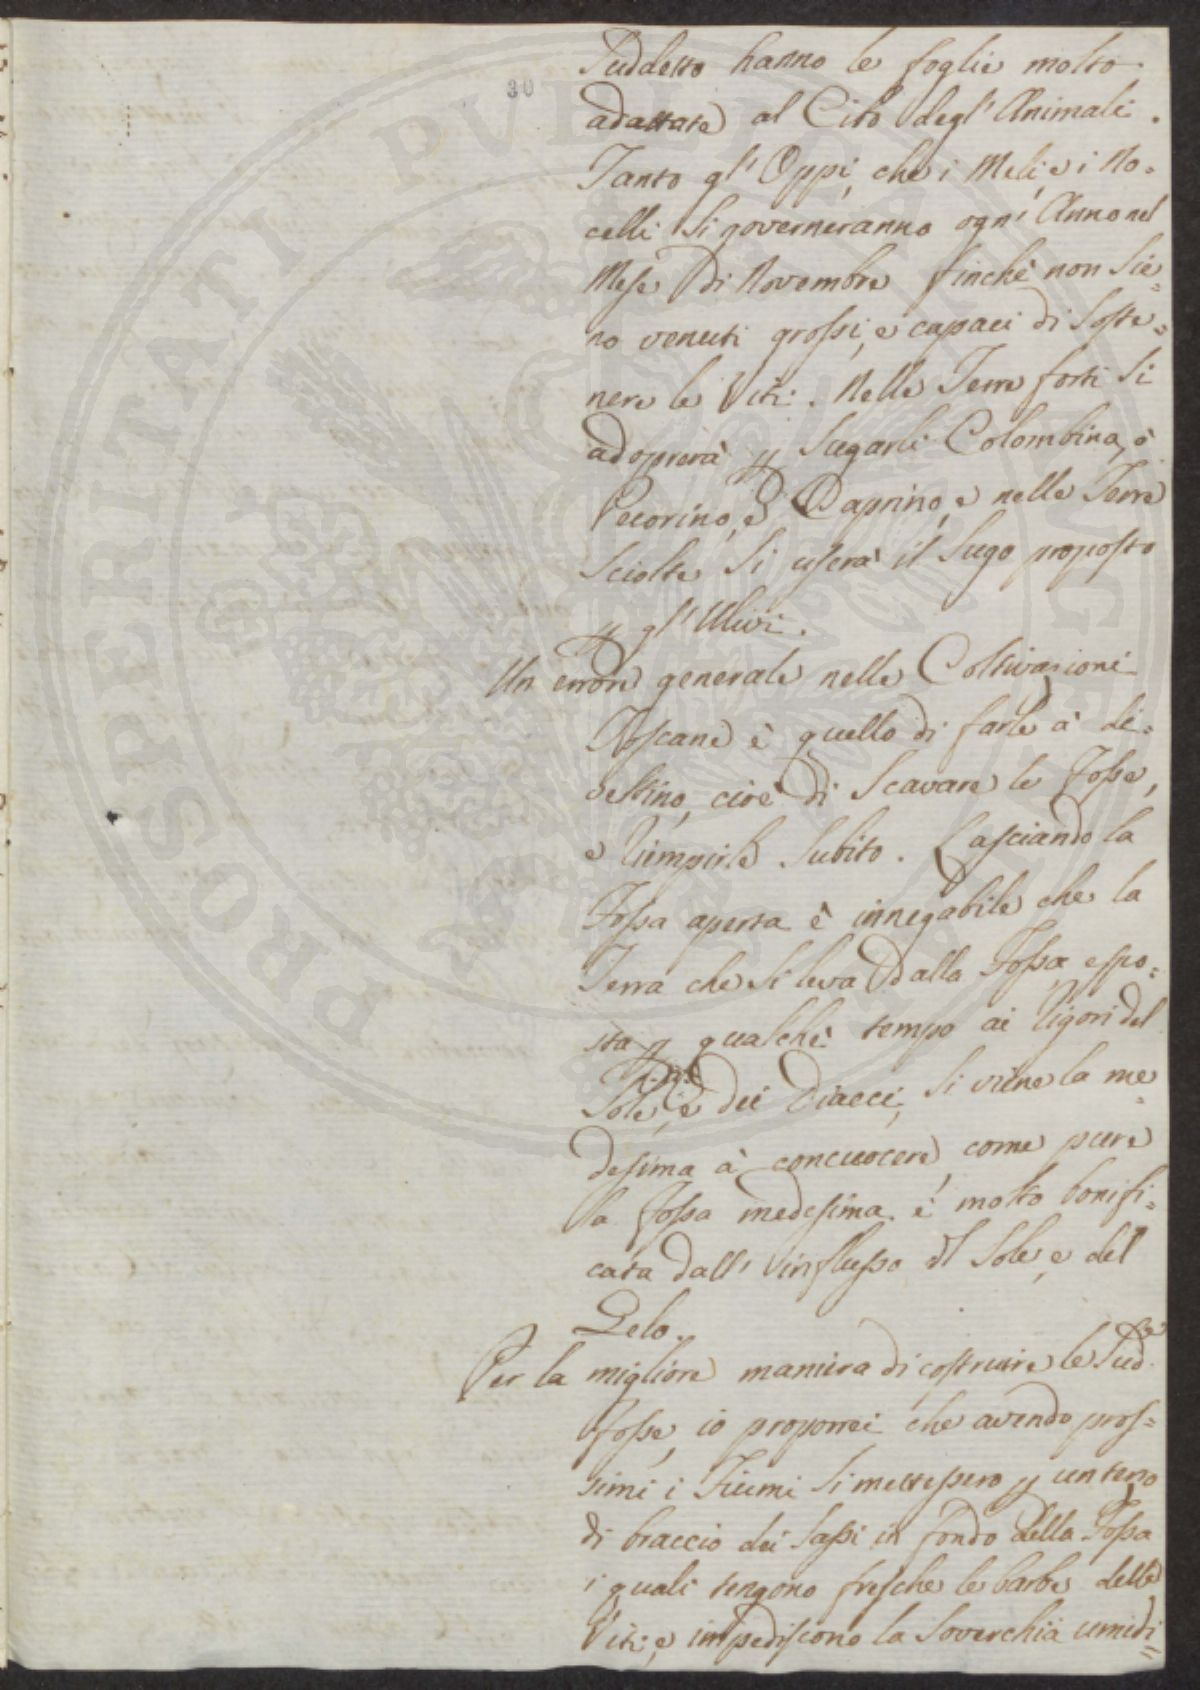 30
Suddetto hanno le foglie molto
adattate al Cibo degl' Animali.
Tanto gl' Oppi, che i Meli, e i No=
celli Si governeranno ogn' Anno nel
Mese di Novembre finchè non Sie=
no venuti grossi, e capaci di Soste=
nere le Viti. Nelle Terre forti Si
adoprerà p Sugarli Colombina, ò
Pecorino, ò Caprino, e nelle Terre
Sciolte Si userà il Sugo proposto
p gl' Ulivi.
Un errore generale nelle Coltivazioni
Toscane è quello di farle à di=
veltino, cioè di Scavare le Fosse,
e riempirle Subito. Lasciando la
Fossa aperta è innegabile che la
Terra che Si leva dalla Fossa espo=
sta p qualche tempo ai rigori del
Sole, e dei Diacci, Si viene la me
desima à concuocere, come pure
la Fossa medesima è molto bonifi=
cata dall' influsso del Sole, e del
Gelo.
Per la migliore maniera di costruire le Sud.e
fosse, io proporrei che avendo pros=
simi i Fiumi Si mettessero p un terzo
di braccio dei Sassi in fondo della Fossa
i quali tengono fresche le barbe delle
Viti, e impediscono la Soverchia umidi=
PROSPERITATI PVBLICAE AVGENDAE